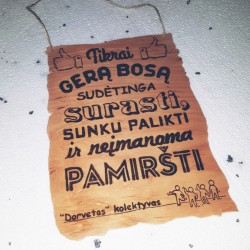 Tikrai
GERĄ BOSĄ
SUDĖTINGA
surasti,
SUNKU PALIKTI
ir neįmanoma
PAMIRŠTI
"Dorvetas" kolektyvas